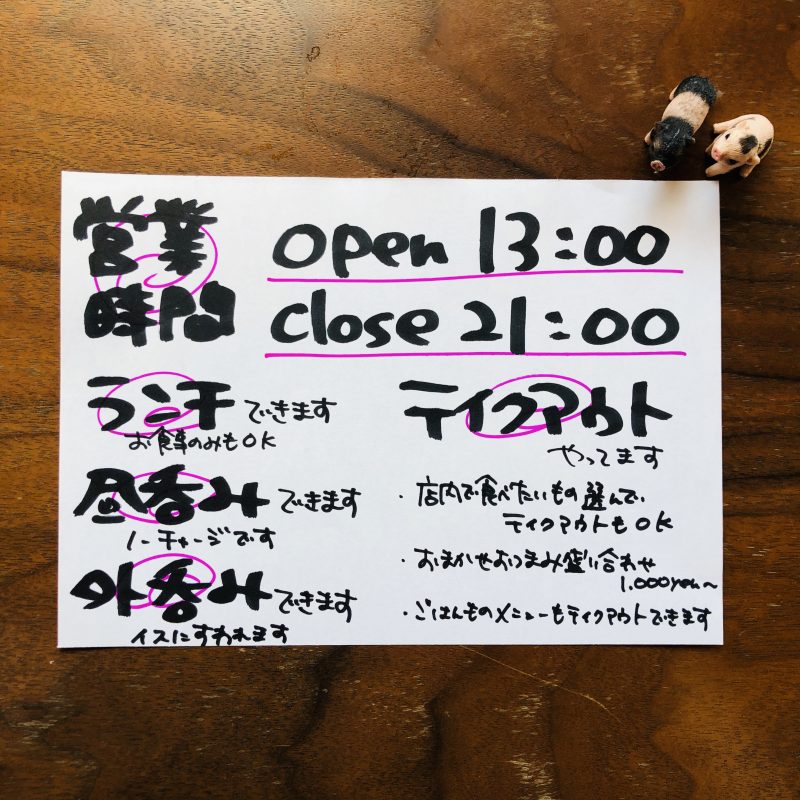 営業
時間
open 13:00
close 21:00
ランチできます
お食事のみもOK
昼呑みできます
ノーチャージです
外呑みできます
イスにすわれます
テイクアウト
やってます
・店内で食べたいもの選んで、
テイクアウトもOK
・おまかせおつまみ盛り合わせ
1,000yen〜
・ごはんものメニューもテイクアウトできます